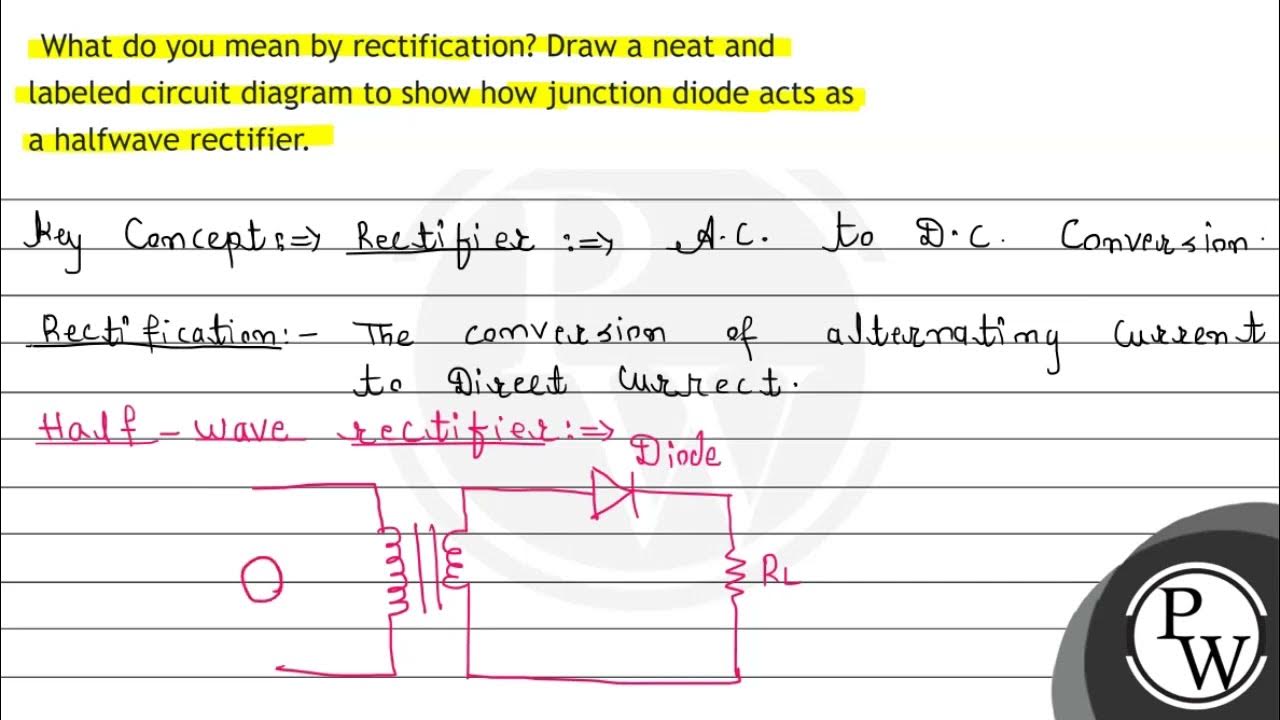 What do you mean by rectification? Draw a neat and
labeled circuit diagram to show how junction diode acts as
a halfwave rectifier.
Key Concept :⇒ Rectifier :⇒ A.C. to D.C. Conversion.
Rectification:- The conversion of alternating current
to Direct Currect.
Half - wave rectifier :⇒
Diode
RL
PW
PW